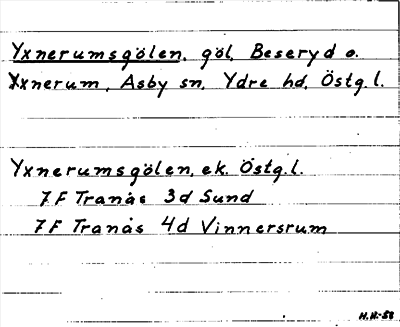 Yxnerumsgölen, göl, Beseryd o.
Yxnerum, Asby sn, Ydre hd, Östg.l.
Yxnerumsgölen, ek. Östg.l.
7F Tranås 3d Sund
7F Tranås 4d Vinnersrum
H.R.-58